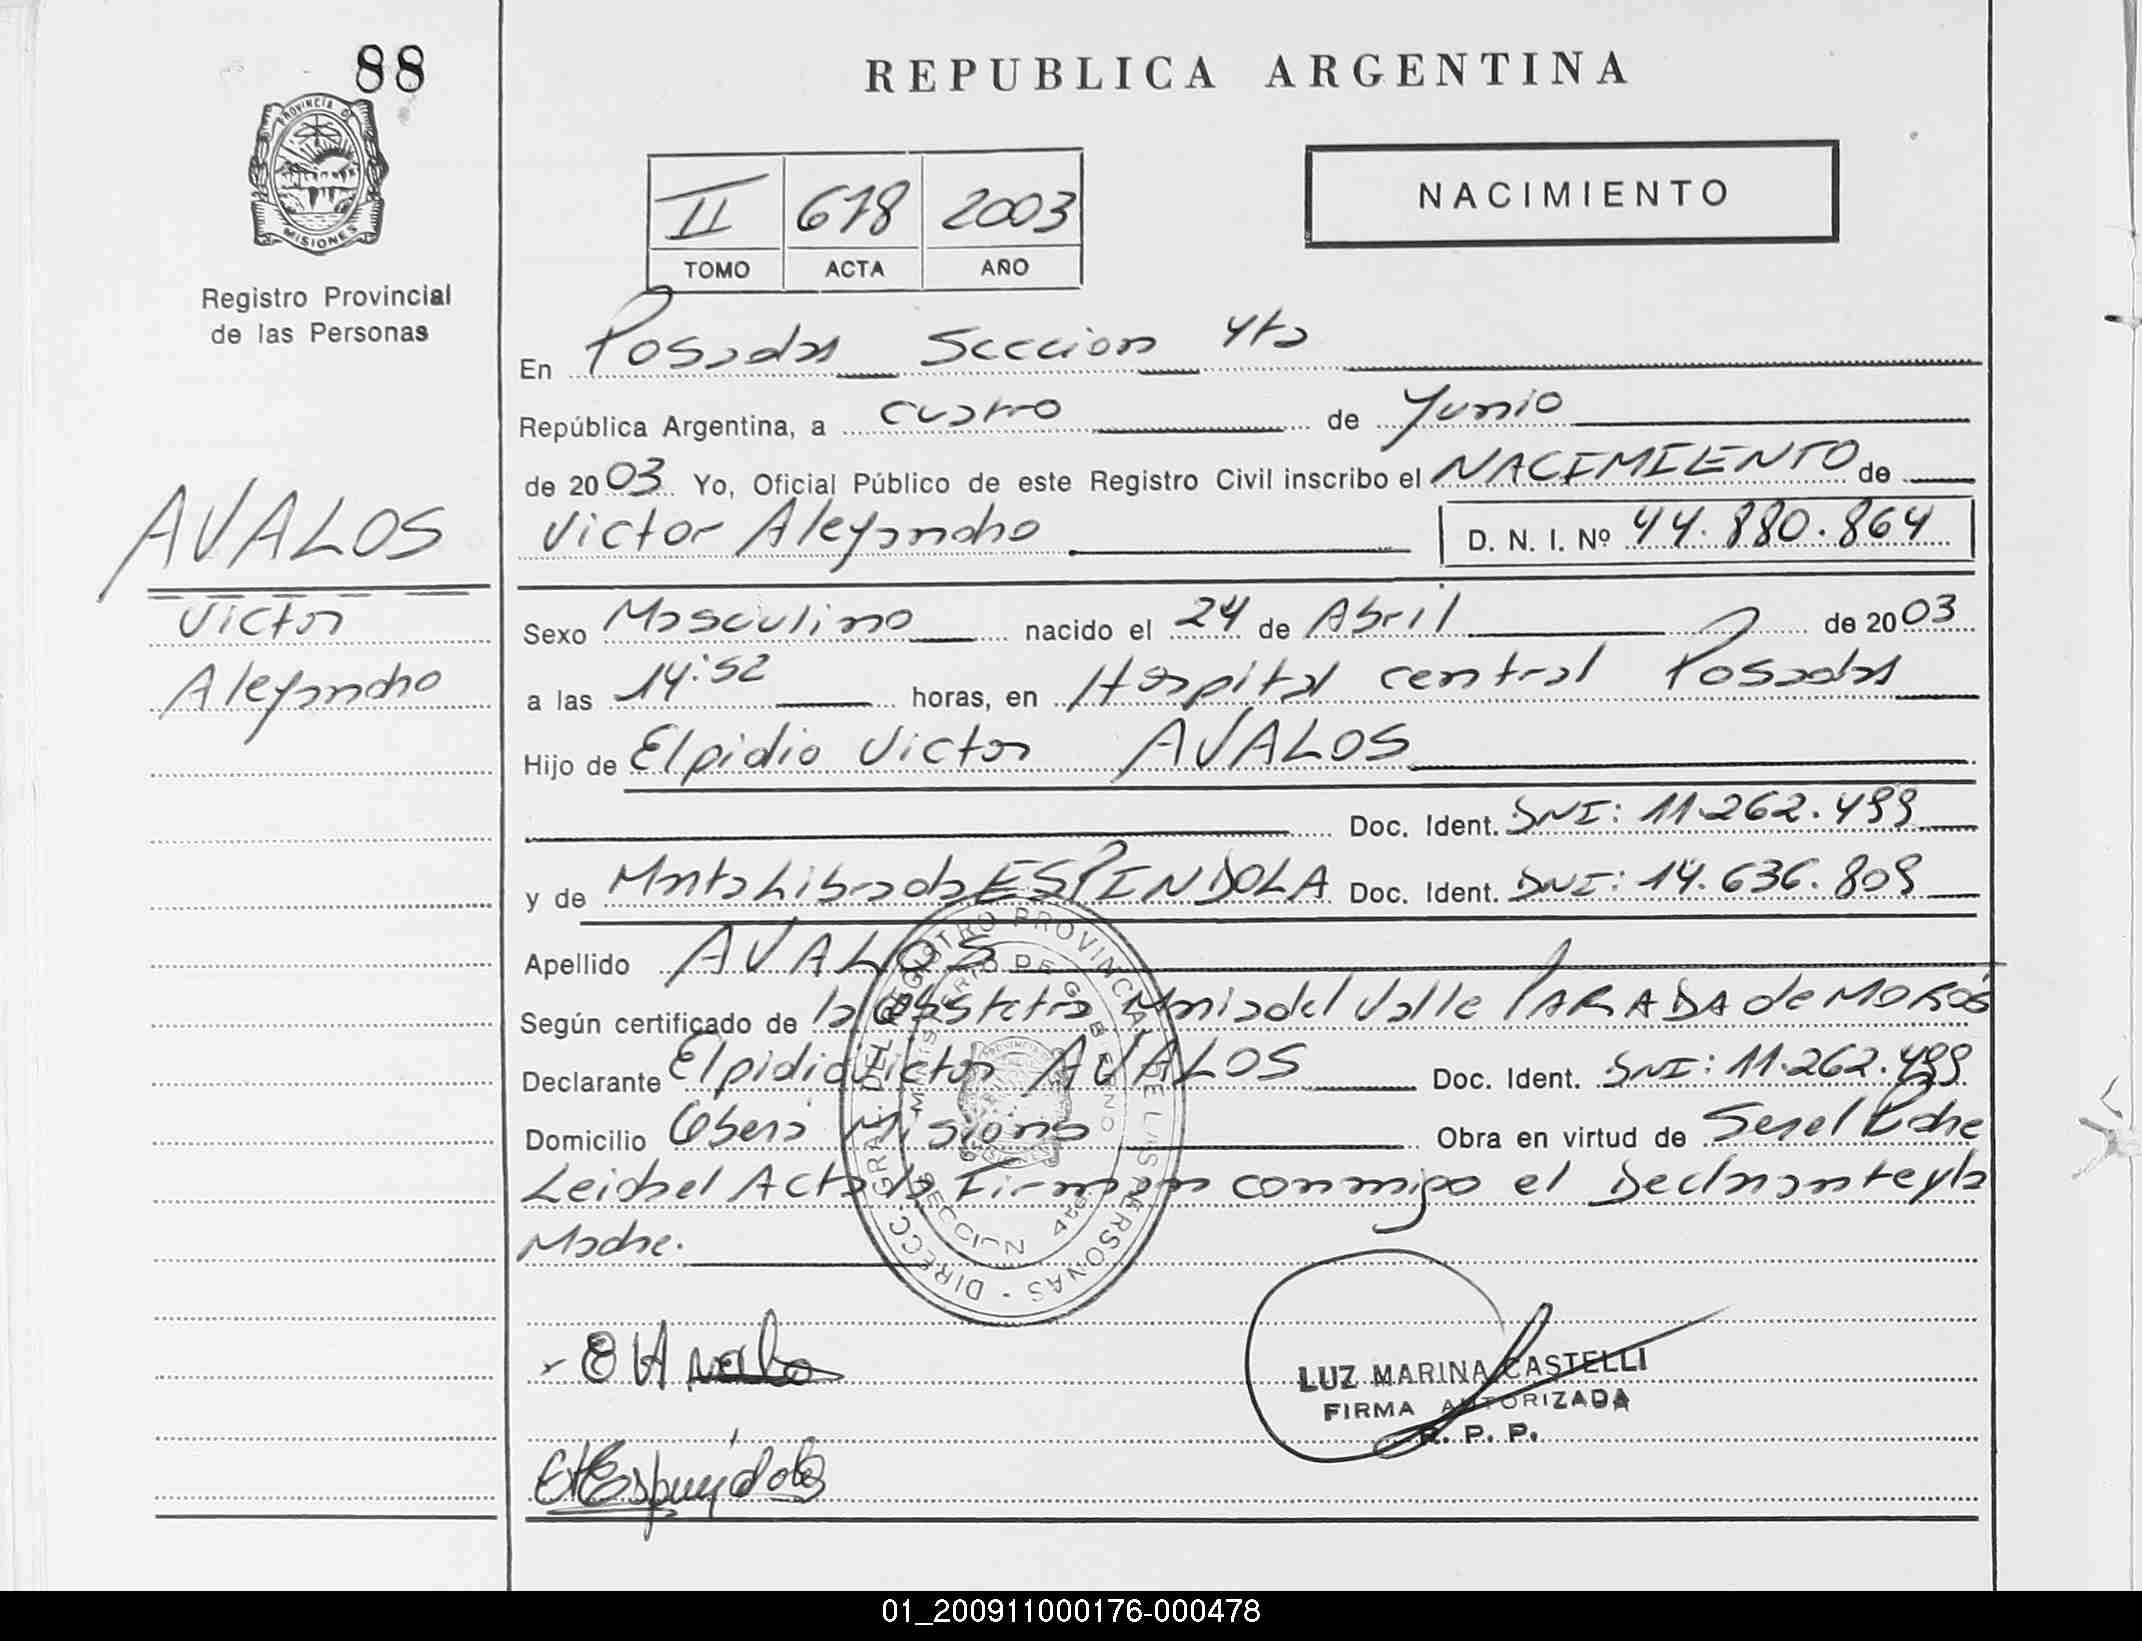 88
PROVINCIA DE
MISIONES
Registro Provincial
de las Personas
REPUBLICA ARGENTINA
II 678 2003
TOMO ACTA AÑO
NACIMIENTO
En Posadas Seccion 4ta
República Argentina, a cuatro de Junio
de 2003 Yo, Oficial Público de este Registro Civil inscribo el NACIMIENTO de
Victor Alejandro D. N. I. Nº 44.880.864
AVALOS
Victor
Alejandro
Sexo Masculino nacido el 24 de Abril de 2003
a las 14:52 horas, en Hospital central Posadas
Hijo de Elpidio Victor AVALOS
Doc. Ident. DNI: 11.262.499
y de Librada ESPINDOLA Doc. Ident. DNI: 14.636.809
Apellido AVALOS
Según certificado de la Obstetra Maria del Valle PARADA de
Declarante Elpidio Victor AVALOS Doc. Ident. DNI: 11.262.499
Domicilio Oberá Misiones Obra en virtud de Ser el Padre
Leida el Acta la Firman conmigo el Declarante y la
Madre.
DIRECC. GRAL. DEL REGISTRO PROVINCIAL DE LAS PERSONAS
MINISTERIO DE GOBIERNO
SECCION 4ta
LUZ MARINA CASTELLI
FIRMA AUTORIZADA
R. P. P.
01_200911000176-000478